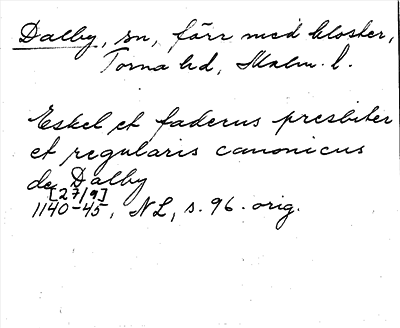 Dalby, sn, förr med kloster,
Torna hd, Malm. l.
Eskel et faderus presbiter
et regularis canonicus
de Dalby
[27/9]
1140-45, NL, s. 96. orig.